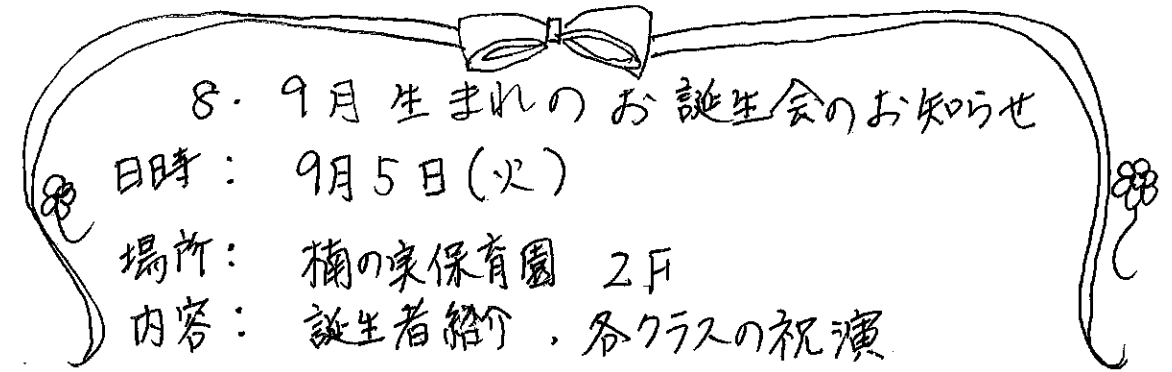 8.9月生まれのお誕生会のお知らせ
日時: 9月5日(火)
場所: 楠の実保育園 2F
内容: 誕生者紹介、各クラスの祝演